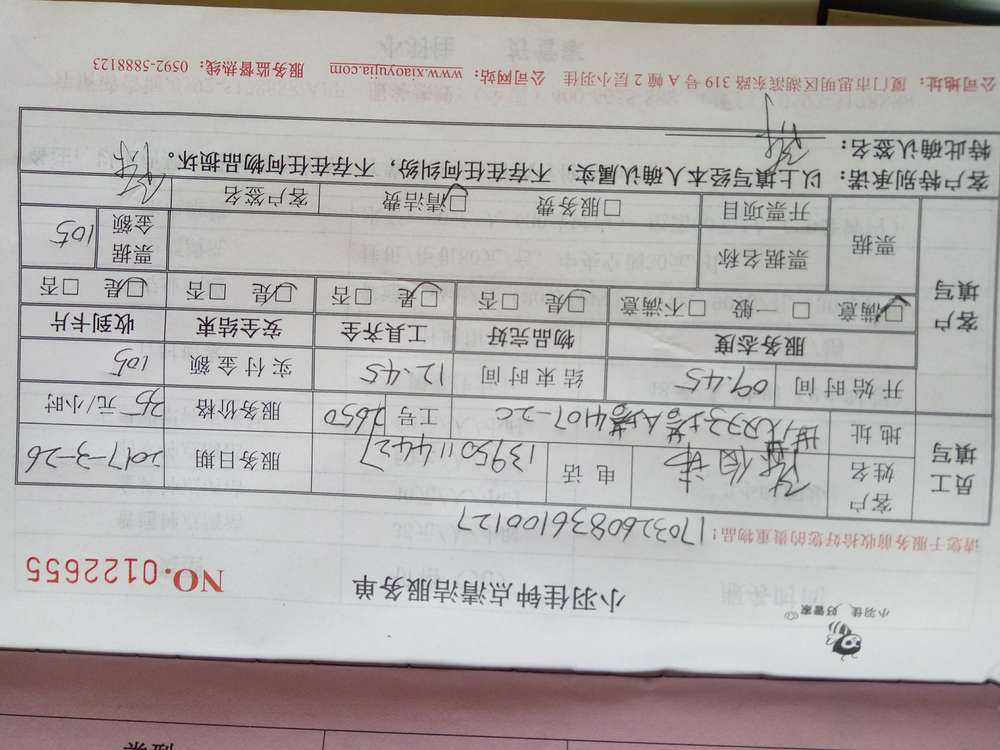 小羽佳 好管家
小羽佳钟点清洁服务单 NO.0122655
请您于服务前收拾好您的贵重物品! 1703260836100127
员工填写 客户姓名 电话 13950114427 服务日期 2017-3-26
地址 工号 2650 服务价格 35 元/小时
开始时间 09.45 结束时间 12.45 实付金额 105
客户填写 服务态度 物品完好 工具齐全 安全结束 收到卡片
☑满意 □一般 □不满意 ☑是 □否 ☑是 □否 ☑是 □否 ☑是 □否
票据 票据名称 票据金额 105
开票项目 □服务费 ☑清洁费 客户签名
客户特别承诺: 以上填写经本人确认属实,不存在任何纠纷,不存在任何物品损坏。
特此确认签名:
公司地址: 厦门市思明区湖滨东路 319 号 A 幢 2 层小羽佳 公司网站: www.xiaoyujia.com 服务监督热线: 0592-5888123